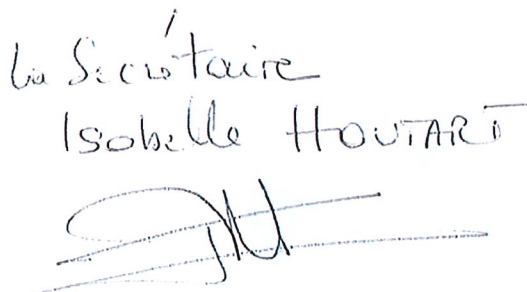 La Secrétaire
Isabelle HOUTART